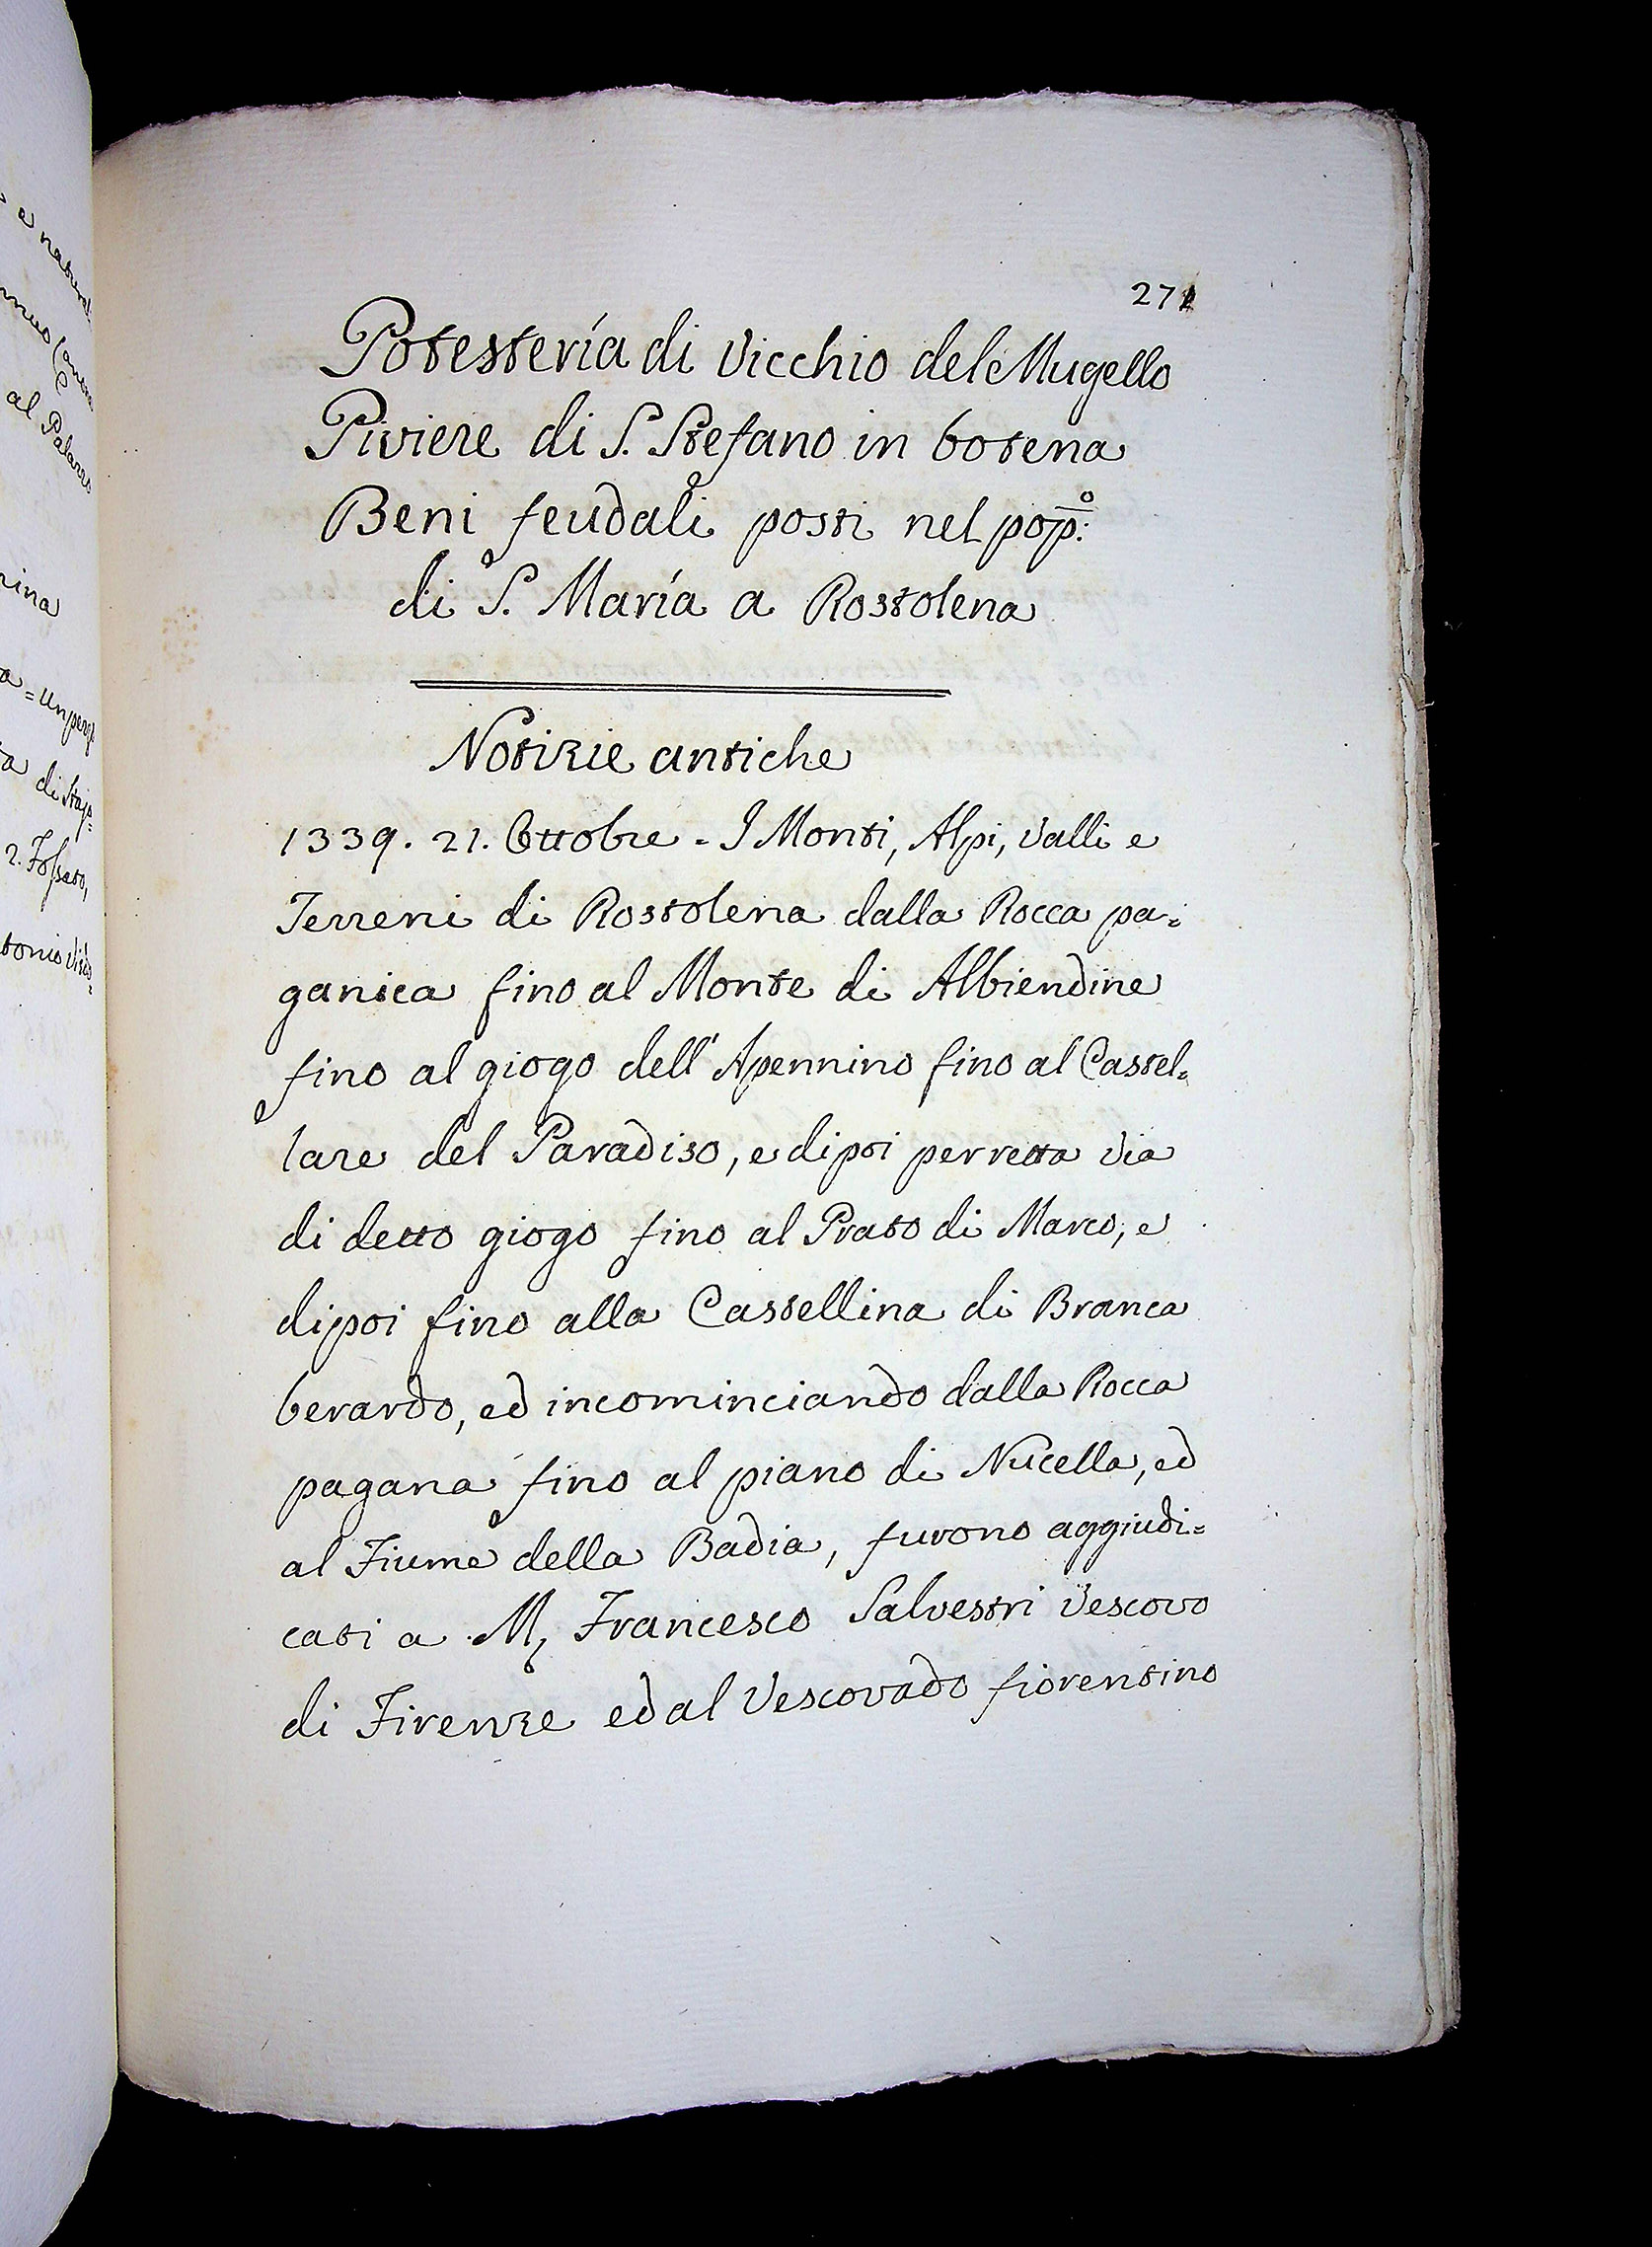 271
Potestería di Vicchio del Mugello
Piviere di S. Stefano in botena
Beni feudali posti nel pop:º
di S. María a Rostolena
Notizie antiche
1339. 21. Ottobre - I Monti, Alpi, Valli e
Terreni di Rostolena dalla Rocca pa=
ganica fino al Monte di Albiendine
fino al giogo dell' Apennino fino al Castel=
lare del Paradiso, e dipoi per retta via
di detto giogo fino al Prato di Marco, e
dipoi fino alla Castellina di Branca
berardo, ed incominciando dalla Rocca
pagana fino al piano di Nucella, ed
al Fiume della Badia, furono aggiudi=
cati a M, Francesco Salvestri Vescovo
di Firenze ed al Vescovado fiorentino
al Palazzo